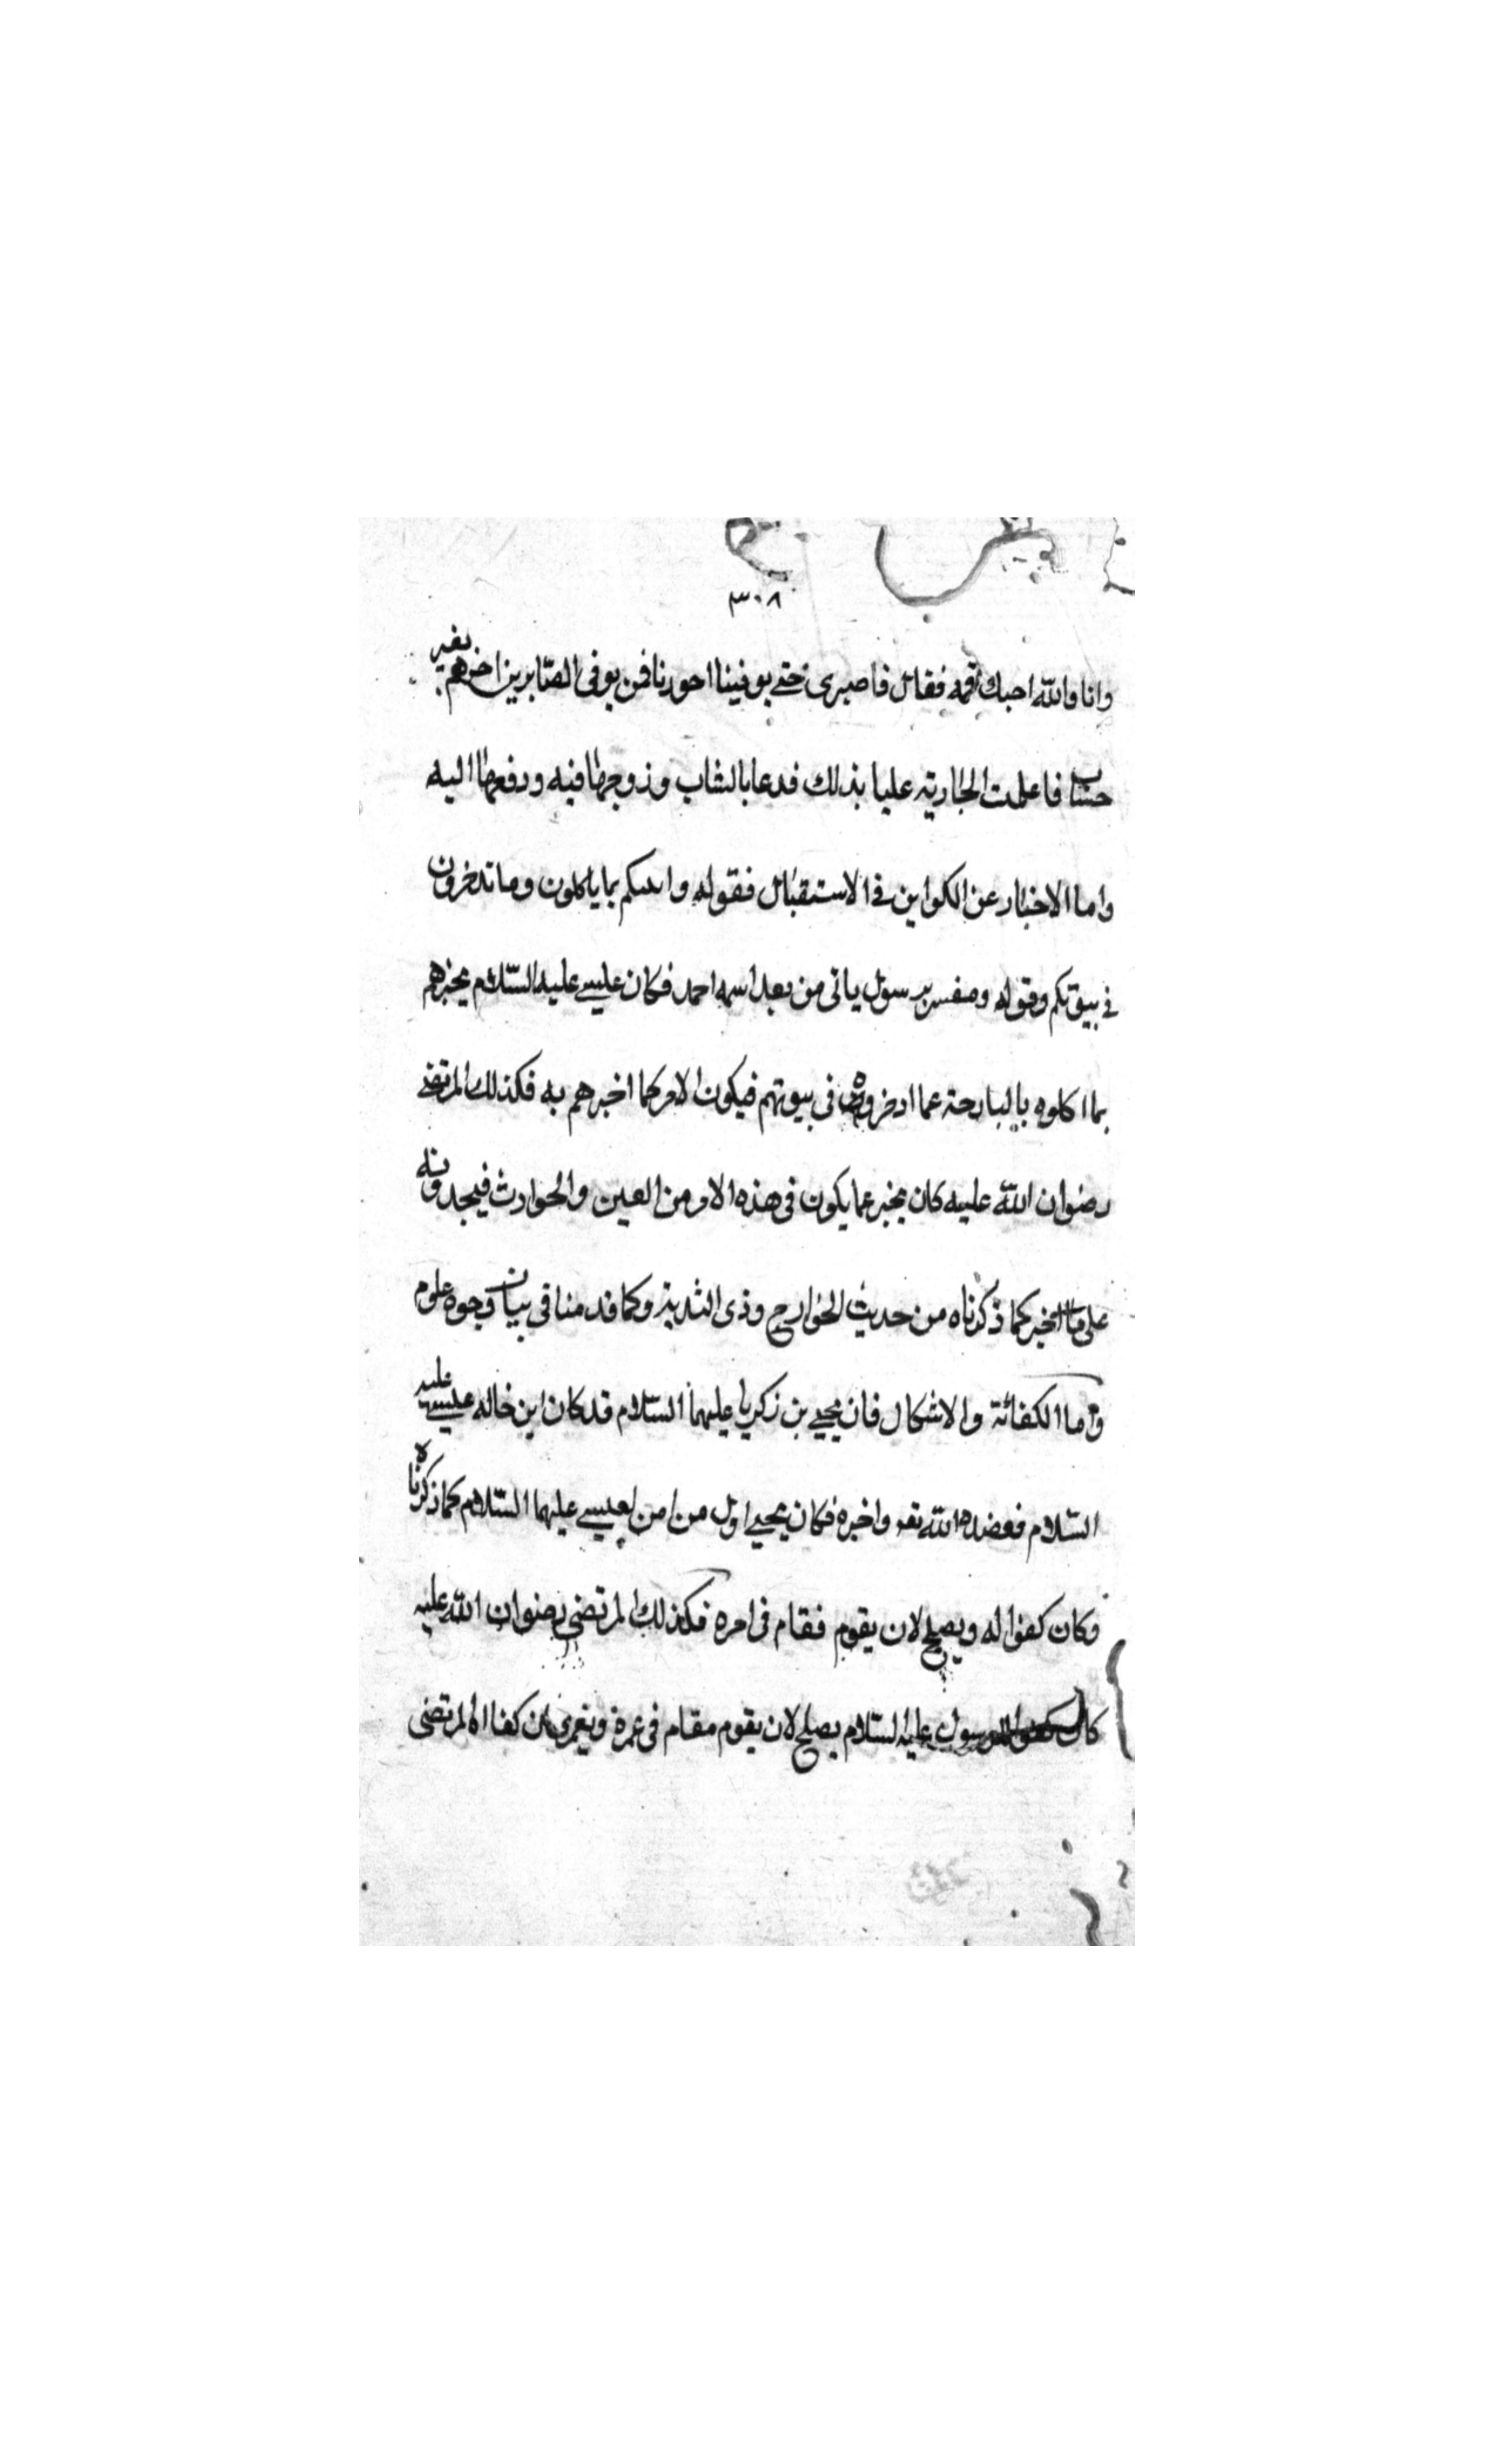 ٣٠٨
وانا والله احبك فمه فقال فاصبرى حتى يوفينا احورنا فمن يوفى الصابرين اخرهم بغير
حساب فاعلمت الجارية عليا بذلك فدعا بالشاب وزوجها فيه ودفعها اليه
واما الاخبار عن الكواين فى الاستقبال فقوله وانبيكم بما ياكلون وما تدخرون
فى بيوتكم وقوله ومبشر برسول ياتى من بعد اسمه احمد فكان عليسے عليه السّلام يخبرهم
بما اكلوه بالبارحة عما ادخروه فى بيوتهم فيكون الامر كما اخبرهم به فكذلك المرتضى
رضوان الله عليه كان يخبر عما يكون فى هذه الامر من العين والحوادث فيجدونه
على ما اخبر كما ذكرناه من حديث الخوارج وذى الثدية وكما قدمنا فى بيان وجوه علوم
واما الكفائة والاشكال فان يحيے بن زكريا عليهما السّلام قد كان ابن خاله عليسے عليه
السّلام فعضده الله تعه واخبره فكان يحيے اول من امن بعيسے عليهما السّلام كما ذكرناه
وكان كفوا له ويصلح لان يقوم فقام فى امره فكذلك المرتضى رضوان الله عليه
كان كفوا لرسول عليه السّلام يصلح لان يقوم مقام فى عمرة كفئا المرتضى